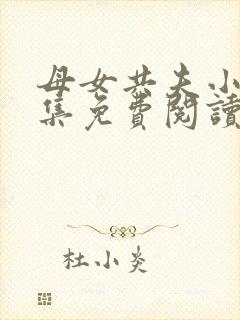 母女共夫小
集免費閱讀
杜小炎